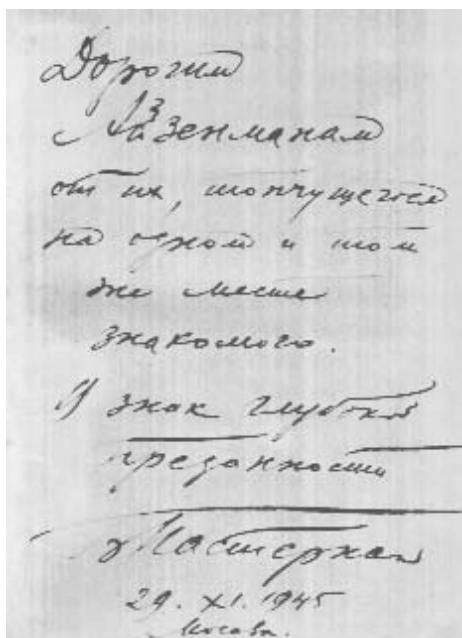 Дорогим
Айзенманам
от их, топчущегося
на одном и том
же месте
знакомого.
В знак глубокой
преданности
29. XI. 1945
Москва.